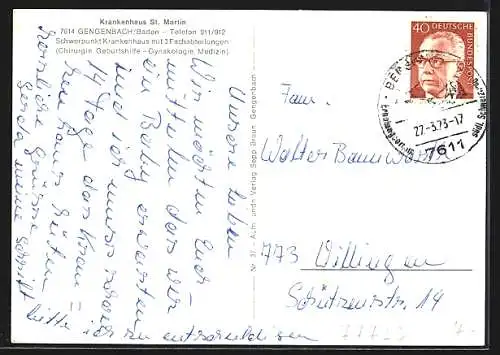 Krankenhaus St. Martin
7614 GENGENBACH/Baden – Telefon 911/912
Schwerpunkt Krankenhaus mit 3 Fachabteilungen
(Chirurgie, Geburtshilfe – Gynäkologie, Medizin)
Unsere Lieben
Wir möchten Euch
mitteilen das wir
ein Baby erwarten
und ich muss
14 Tage das Kran =
kenhaus hüten
Herzliche Grüsse
Gerda
meine Schrift bitte ich zu entschuldigen
Auto und Verlag Sepp Braun, Gengenbach
40
DEUTSCHE
BUNDESPOST
27-3.73-17
7611
Fam.
Walter
773 Villingen
Schützenstr. 14